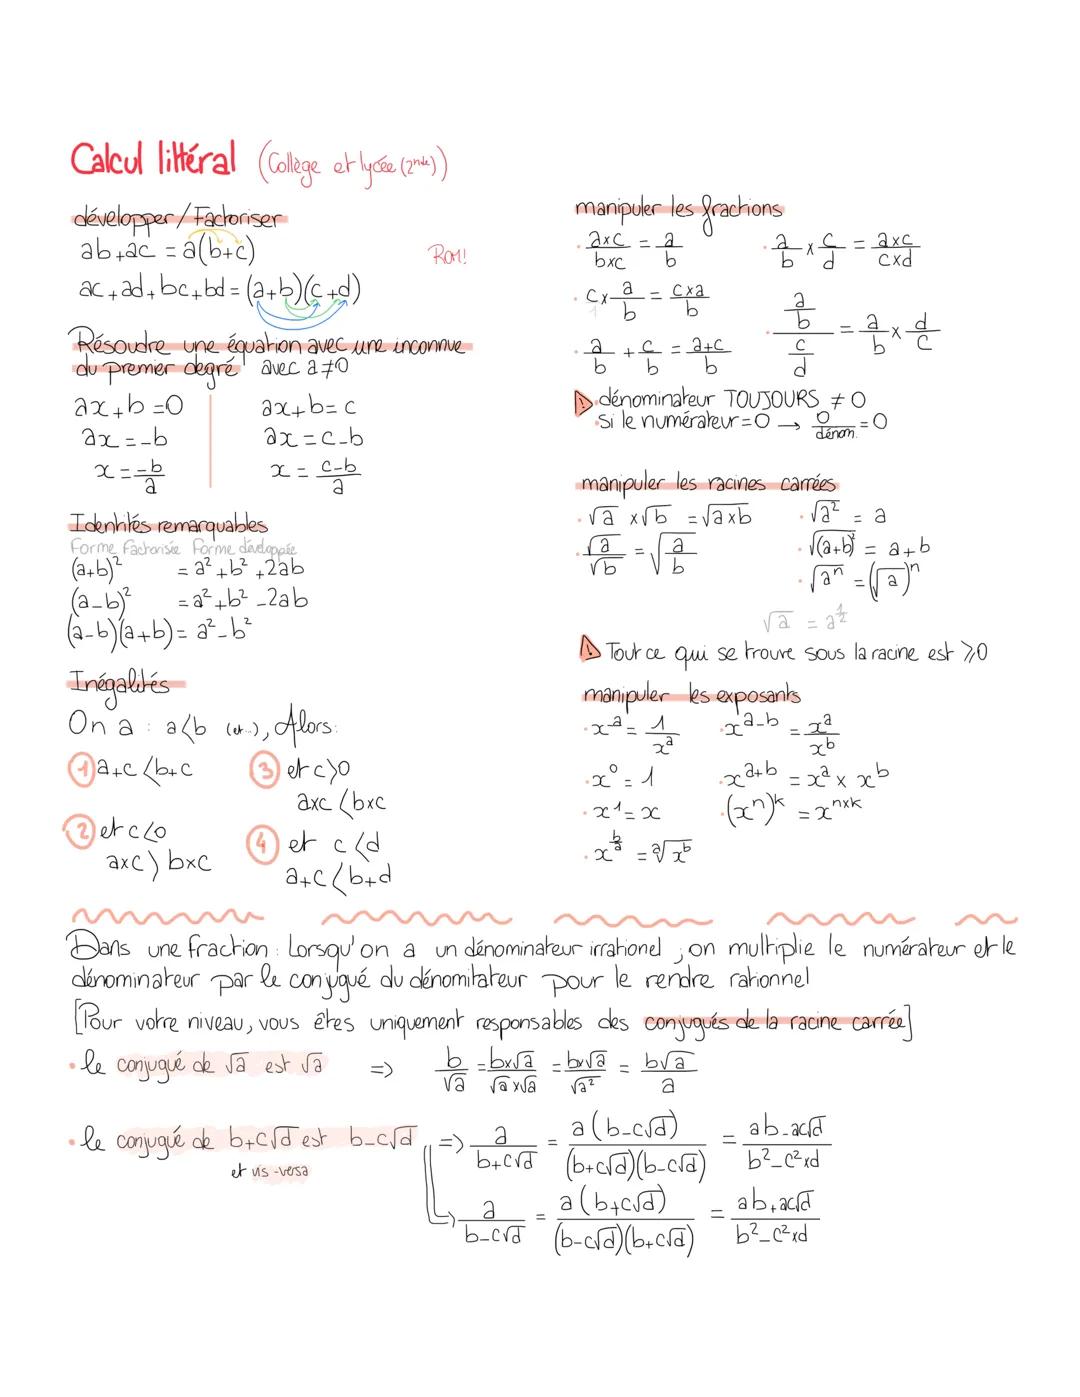 Calcul littéral (Collège et lycée (2nde))
développer / Factoriser
ab+ac = a(b+c)
ROM!
ac+ad+bc+bd = (a+b)(c+d)
Résoudre une équation avec une inconnue
du premier degré avec a≠0
ax+b=0
ax=-b
x = -b/a
ax+b=c
ax=c-b
x = c-b/a
Identités remarquables
Forme Factorisée Forme développée
(a+b)² = a²+b²+2ab
(a-b)² = a²+b²-2ab
(a-b)(a+b) = a²-b²
Inégalités
On a : a<b (et...), Alors:
1 a+c<b+c
2 et c<0
axc > bxc
3 et c>0
axc < bxc
4 et c<d
a+c < b+d
manipuler les fractions
· axc/bxc = a/b
· a/b × c/d = axc/cxd
· c× a/b = cxa/b
1
· a/b / c/d = a/b × d/c
· a/b + c/b = a+c/b
⚠ · dénominateur TOUJOURS ≠ 0
· Si le numérateur=0 → 0/dénom. = 0
manipuler les racines carrées
· √a ×√b = √axb
· √a² = a
· √a/√b = √a/b
· √(a+b)² = a+b
· √aⁿ = (√a)ⁿ
√a = a^1/2
⚠ Tout ce qui se trouve sous la racine est ≥0
manipuler les exposants
· x^-a = 1/x^a
· x^a-b = x^a/x^b
· x⁰ = 1
· x^a+b = x^a × x^b
· x¹ = x
· (xⁿ)^k = x^nxk
· x^b/a = ᵃ√x^b
Dans une fraction : Lorsqu'on a un dénominateur irrationel ; on multiplie le numérateur et le
dénominateur par le conjugué du dénomitateur pour le rendre rationnel
[Pour votre niveau, vous êtes uniquement responsables des conjugués de la racine carrée]
· le conjugué de √a est √a => b/√a = bx√a/√a x√a = bx√a/√a² = b√a/a
· le conjugué de b+c√d est b-c√d => a/b+c√d = a(b-c√d)/(b+c√d)(b-c√d) = ab-ac√d/b²-c²xd
et vis-versa
→ a/b-c√d = a(b+c√d)/(b-c√d)(b+c√d) = ab+ac√d/b²-c²xd